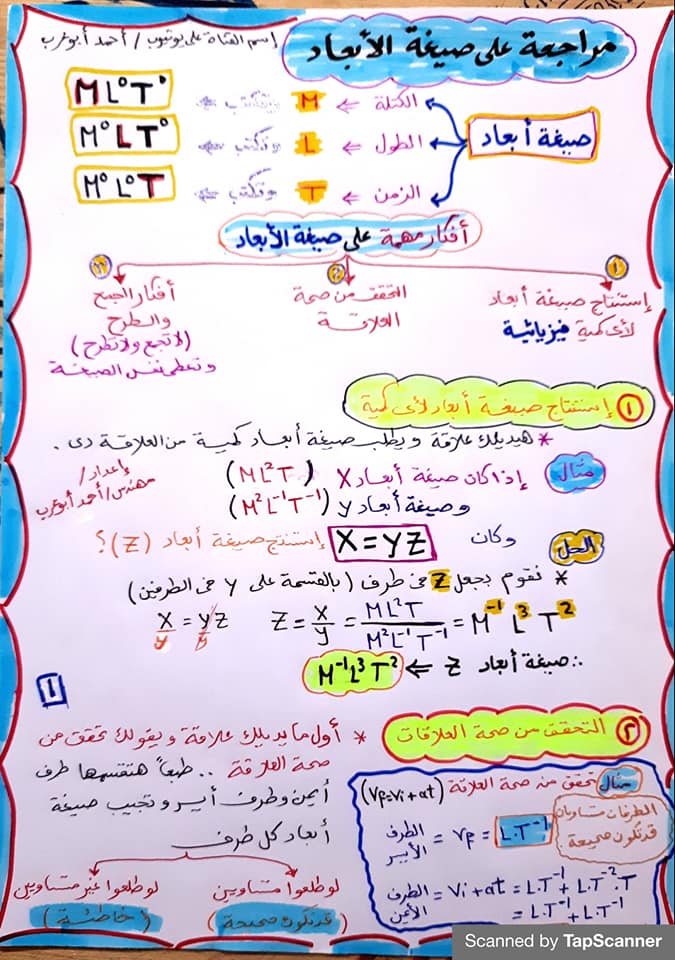 مراجعة على صيغة الأبعاد
إسم القناة على يوتيوب / أحمد أبوغرب
صيغة أبعاد
الكتلة ⇐ M وتكتب ⇐ M L⁰ T⁰
الطول ⇐ L وتكتب ⇐ M⁰ L T⁰
الزمن ⇐ T وتكتب ⇐ M⁰ L⁰ T
أفكار مهمة على صيغة الأبعاد
١
إستنتاج صيغة أبعاد
لأى كمية فيزيائية
٢
التحقق من صحة
العلاقة
٣
أفكار الجمع
والطرح
(لا تجمع ولا تطرح)
وتعطى نفس الصيغة
١ إستنتاج صيغة أبعاد لأى كمية
* هيديلك علاقة ويطلب صيغة أبعاد كمية من العلاقة دى.
مثال إذا كان صيغة أبعاد X (ML²T)
وصيغة أبعاد y (M²L⁻¹T⁻¹)
إعداد/
مهندس/أحمد أبوغرب
وكان X = yZ إستنتج صيغة أبعاد (Z)؟
الحل
* نقوم بجعل Z فى طرف (بالقسمة على y فى الطرفين)
X/y = yZ/y Z = X/y = ML²T / M²L⁻¹T⁻¹ = M⁻¹ L³ T²
∴ صيغة أبعاد Z ⇐ M⁻¹L³T²
1
٢ التحقق من صحة العلاقات
* أول ما يديلك علاقة ويقولك تحقق من
صحة العلاقة .. طبعاً هتقسمها طرف
أيمن وطرف أيسر وتجيب صيغة
أبعاد كل طرف
لو طلعوا متساويين
(قد تكون صحيحة)
لو طلعوا غير متساويين
(خاطئة)
مثال تحقق من صحة العلاقة (Vf=Vi+at)
الطرف الأيسر = Vf = L.T⁻¹
الطرفان متساويان
قد تكون صحيحة
الطرف الأيمن = Vi + at = L.T⁻¹ + L.T⁻².T
= L.T⁻¹ + L.T⁻¹
Scanned by TapScanner